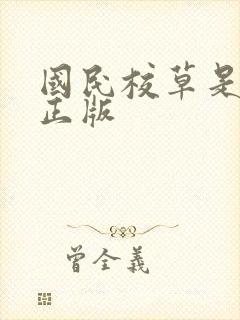 國民校草是
正版
曾全義